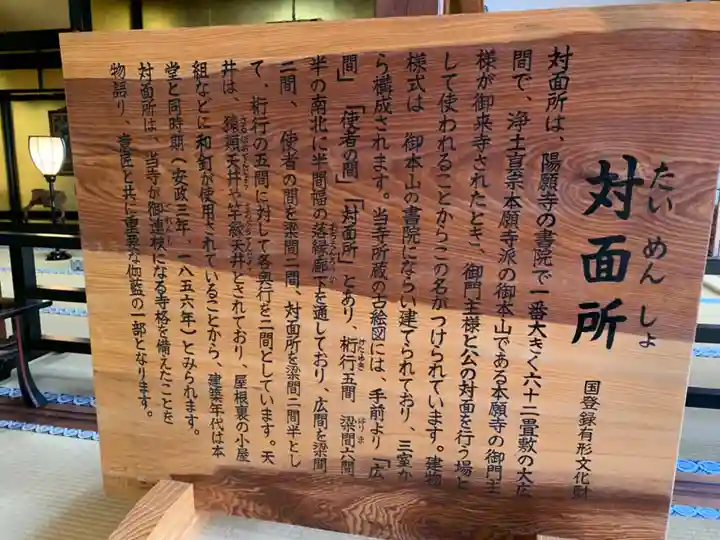 たいめんしょ
対面所
国登録有形文化財
対面所は、陽願寺の書院で一番大きく六十二畳敷の大広
間で、浄土真宗本願寺派の御本山である本願寺の御門主
様が御来寺されたとき、御門主様と公の対面を行う場と
して使われることからこの名がつけられています。建物
様式は 御本山の書院にならい建てられており、三室か
ら構成されます。当寺所蔵の古絵図には、手前より「広
間」「使者の間」「対面所」とあり、桁行五間 梁間六間
けたゆき はりま
半の南北に半間幅の落縁廊下を通しており、広間を梁間
二間、使者の間を梁間二間、対面所を梁間二間半とし
て、桁行の五間に対して各奥行を二間としています。天
井は、猿頬天井や竿縁天井とされており、屋根裏の小屋
組などに和釘が使用されていることから、建築年代は本
堂と同時期(安政三年、一八五六年)とみられます。
対面所は、当寺が御連枝になる寺格を備えたことを
物語り、意匠と共に重要な伽藍の一部となります。